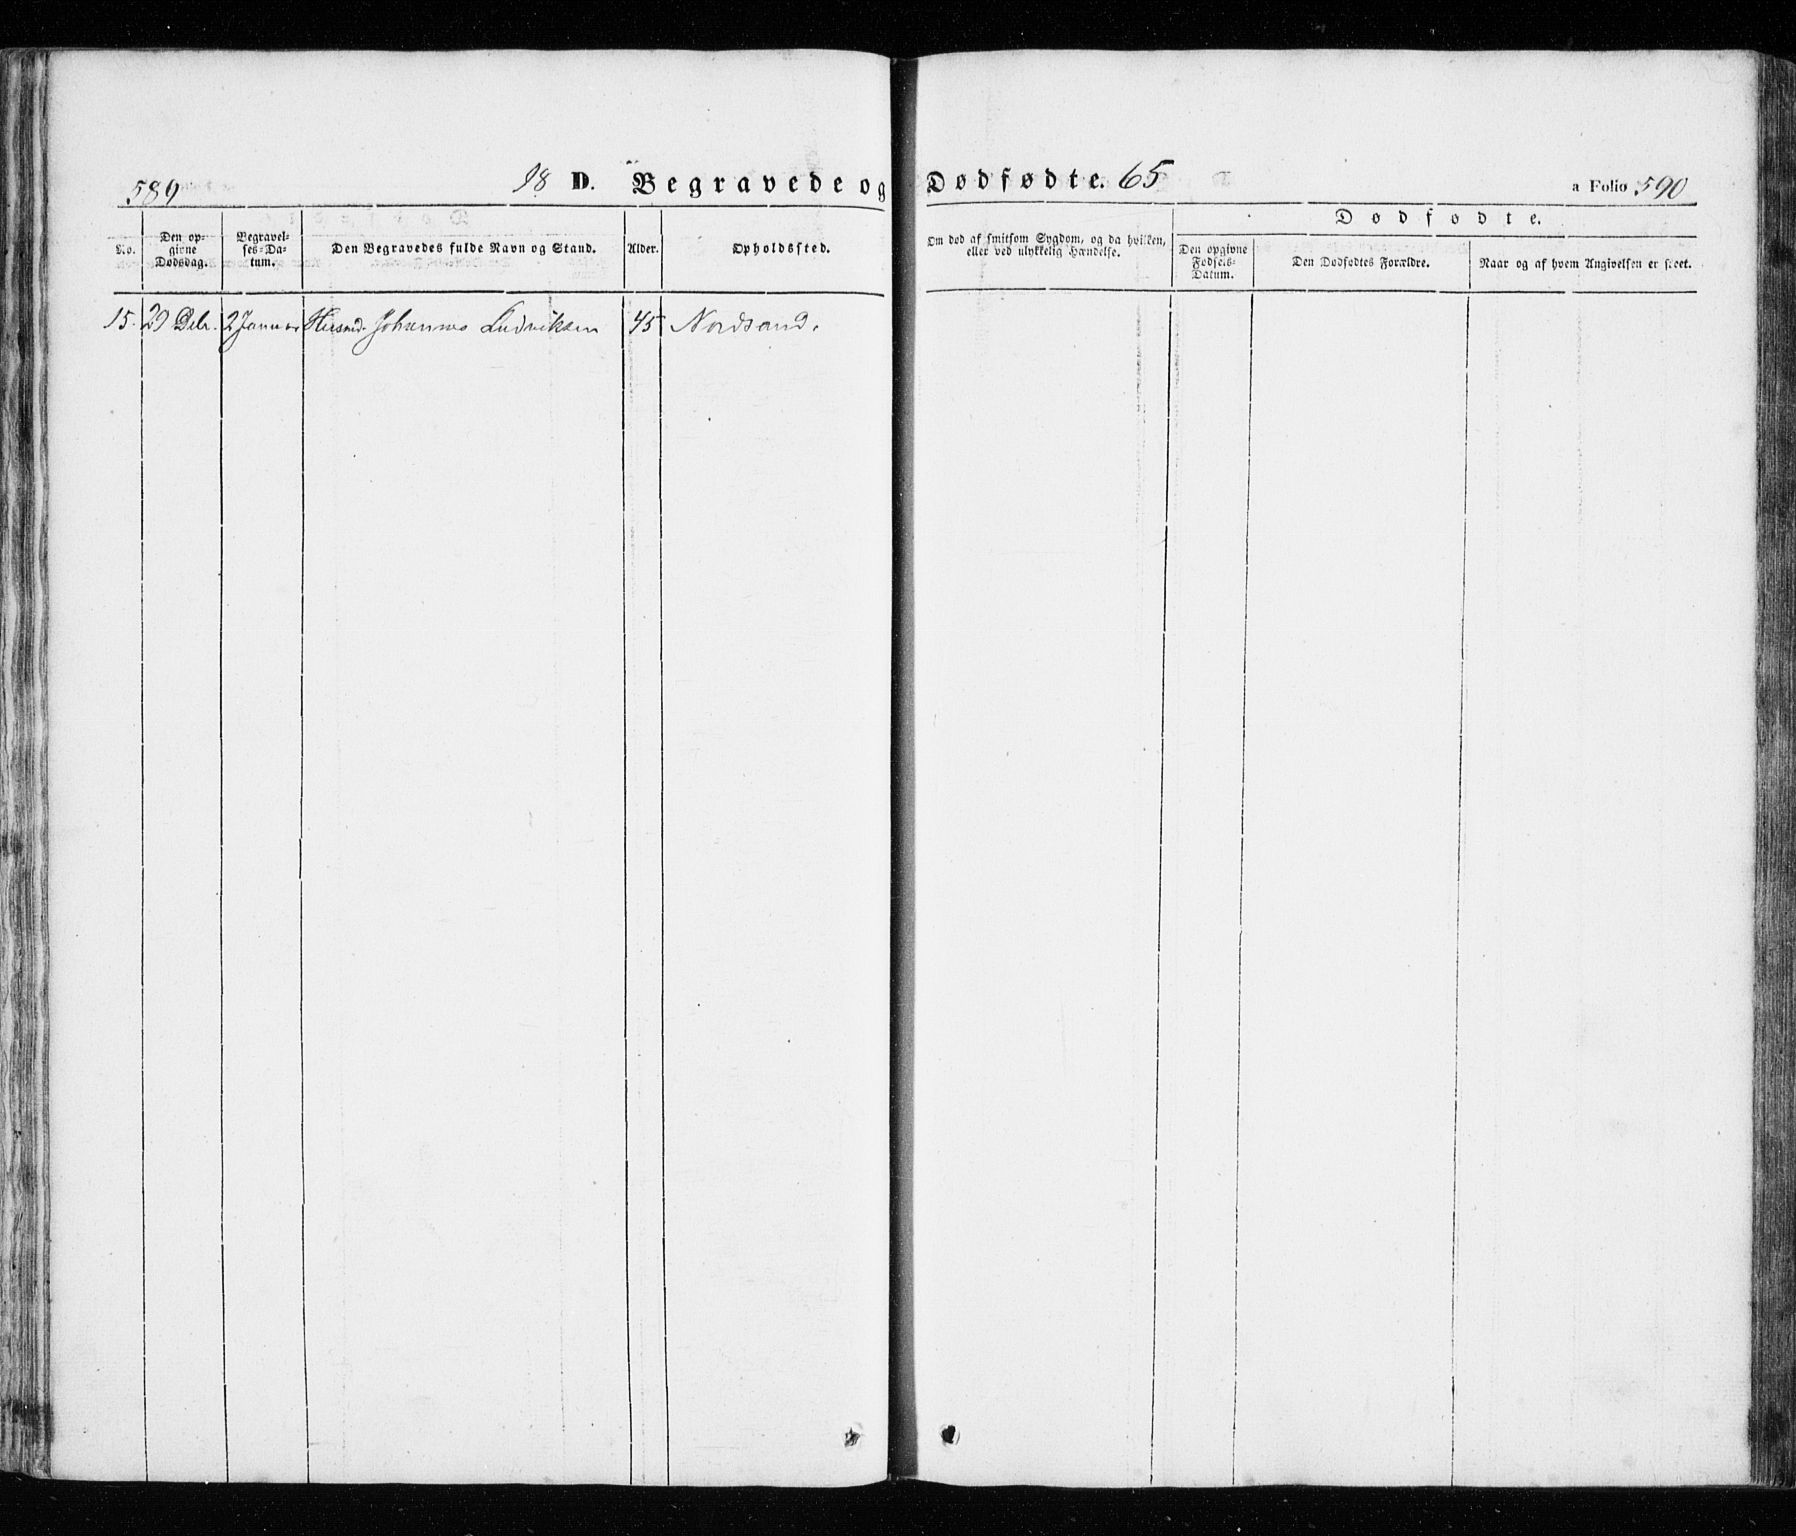 589
18 D. Begravede og Dødfødte. 65
a Folio 590
No.
Den opgivne Dødsdag.
Begravelses-Datum.
Den Begravedes fulde Navn og Stand.
Alder.
Opholdssted.
Om død af smitsom Sygdom, og da hvilken,
eller ved ulykkelig Hændelse.
Dødfødte.
Den opgivne Fødsels-Datum.
Den Dødfødtes Forældre.
Naar og af hvem Angivelsen er skeet.
15. 29 Debr. 2 Januar Husmd. Johannes Ludviksen 45 Nordsand.